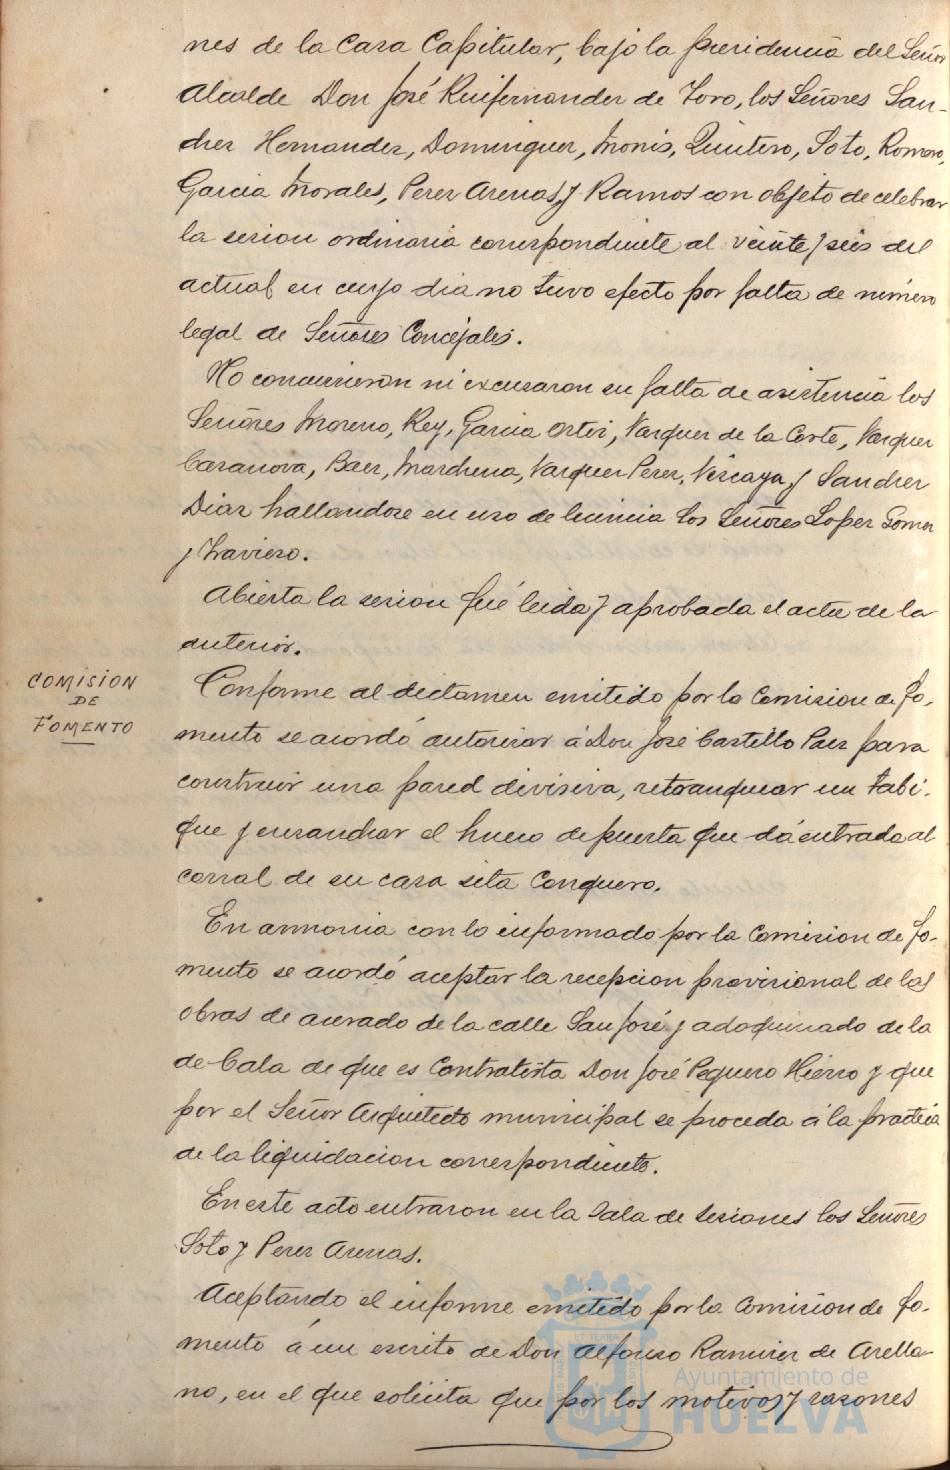 nes de la Casa Capitular, bajo la presidencia del Señor
Alcalde Don José Ruifernandez de Toro, los Señores San-
chez Hernandez, Dominguez, Monis, Quintero, Soto, Romero,
Garcia Morales, Perez Arenas, y Ramos con objeto de celebrar
la sesion ordinaria correspondiente al veinte y seis del
actual en cuyo dia no tuvo efecto por falta de número
legal de Señores Concejales.
No concurrieron ni excusaron su falta de asistencia los
Señores Moreno, Rey, Garcia Ortiz, Vazquez de la Corte, Vazquez
Casanova, Baez, Marchena, Vazquez Perez, Vizcaya y Sanchez
Diaz hallandose en uso de licencia los Señores Lopez Gomez
y Travieso.
Abierta la sesion fué leida y aprobada el acta de la
anterior.
COMISION
DE
FOMENTO
Conforme al dictamen emitido por la Comision de Fo-
mento se acordó autorizar á Don José Castillo Paez para
construir una pared divisiva, retranquear un tabi-
que y ensanchar el hueco de puerta que dá entrada al
corral de su casa sita Conquero.
En armonia con lo informado por la Comision de Fo-
mento se acordó aceptar la recepcion provisional de las
obras de acerado de la calle San José y adoquinado de la
de Cala de que es Contratista Don José Peguero Hierro y que
por el Señor Arquitecto municipal se proceda á la practica
de la liquidacion correspondiente.
En este acto entraron en la Sala de Sesiones los Señores
Soto y Perez Arenas.
Aceptando el informe emitido por la Comision de Fo-
mento á un escrito de Don Alfonso Ramirez de Arella-
no, en el que solicita que por los motivos y razones
Ayuntamiento de
HUELVA